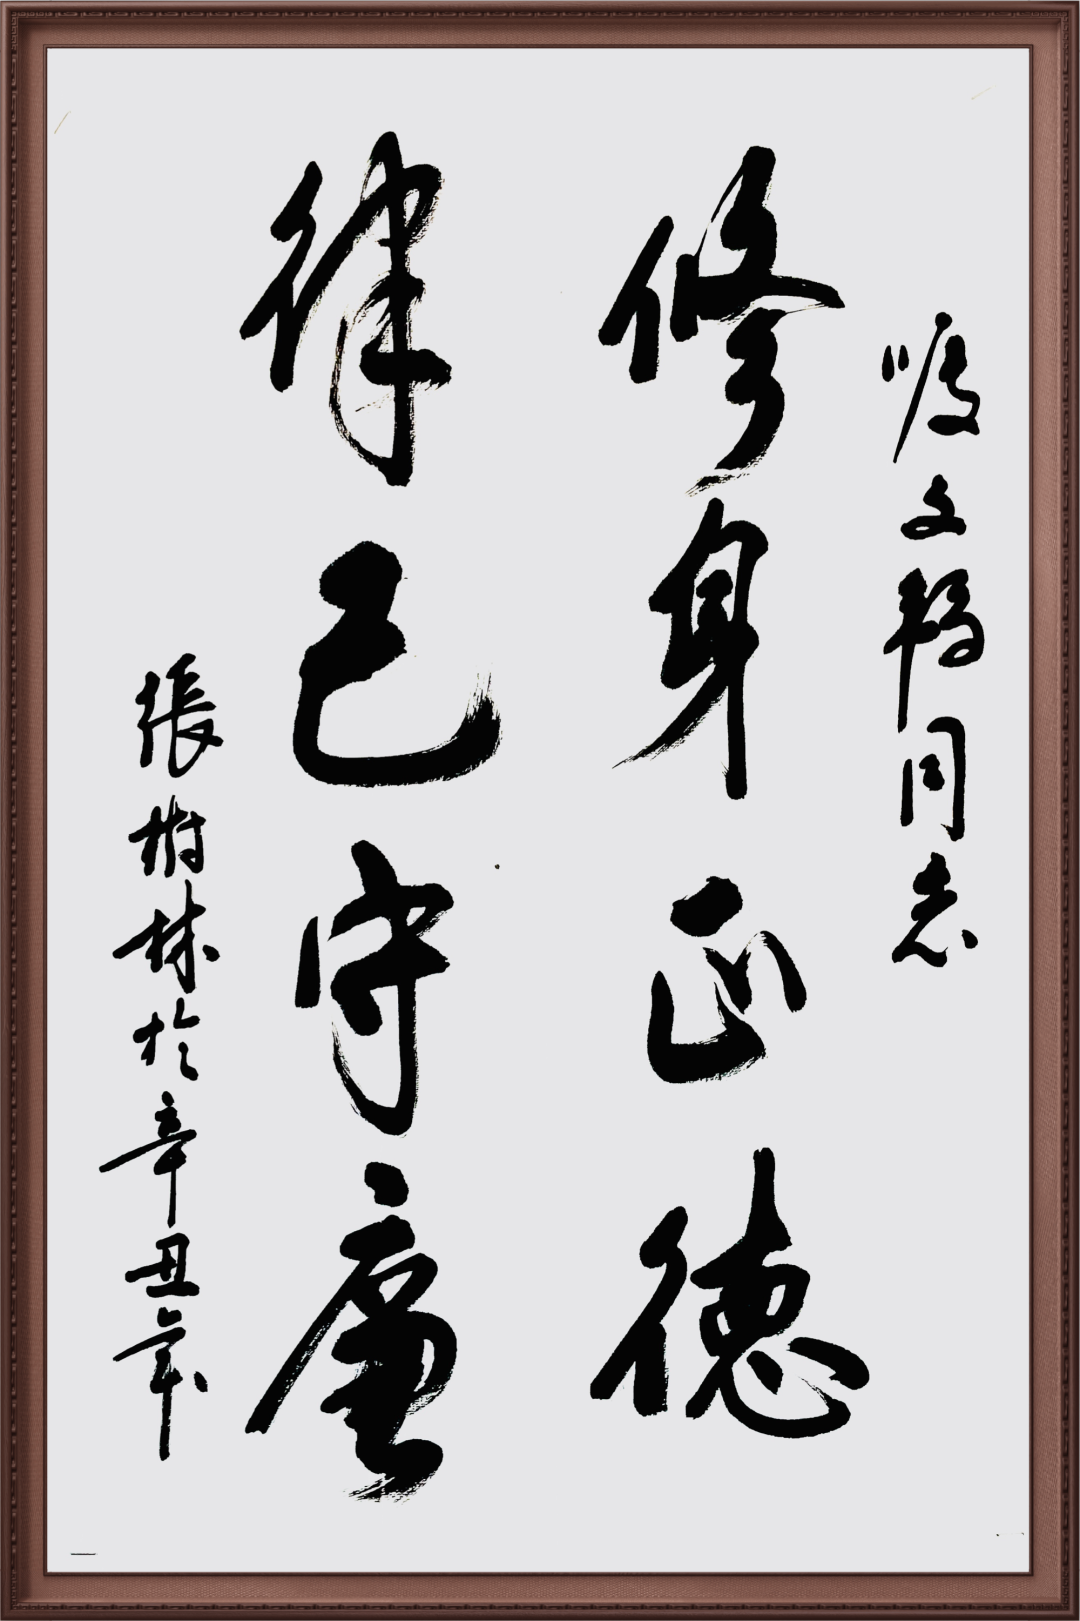 文同志
修身正德
律己守廉
張樹林於辛丑年